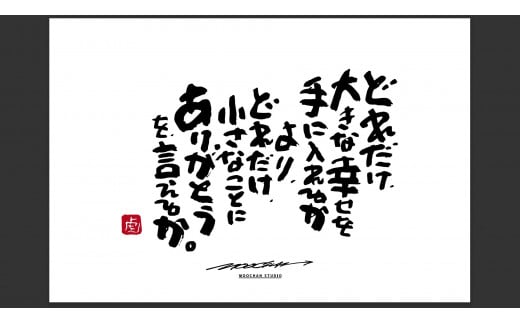 どれだけ
大きな幸せを
手に入れるか
より
どれだけ
小さなことに
ありがとう
を言えるか。
MOOCHAN STUDIO